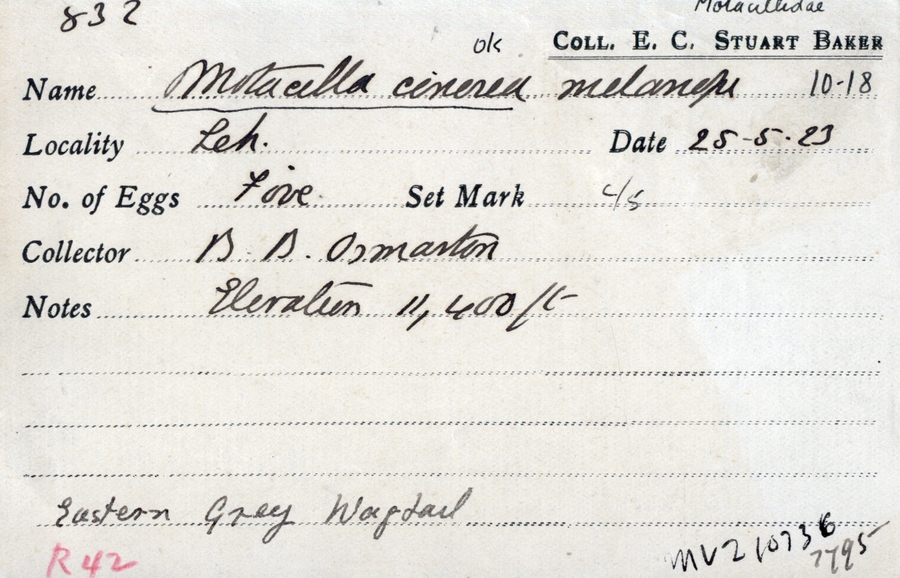 832
Motacillidae
ok COLL. E. C. STUART BAKER
Name Motacilla cinerea melanope 10-18
Locality Leh. Date 25-5-23
No. of Eggs Five Set Mark 4/5
Collector B. B. Osmaston
Notes Elevation 11,400 ft
Eastern Grey Wagtail
R42
MVZ 10736
7795